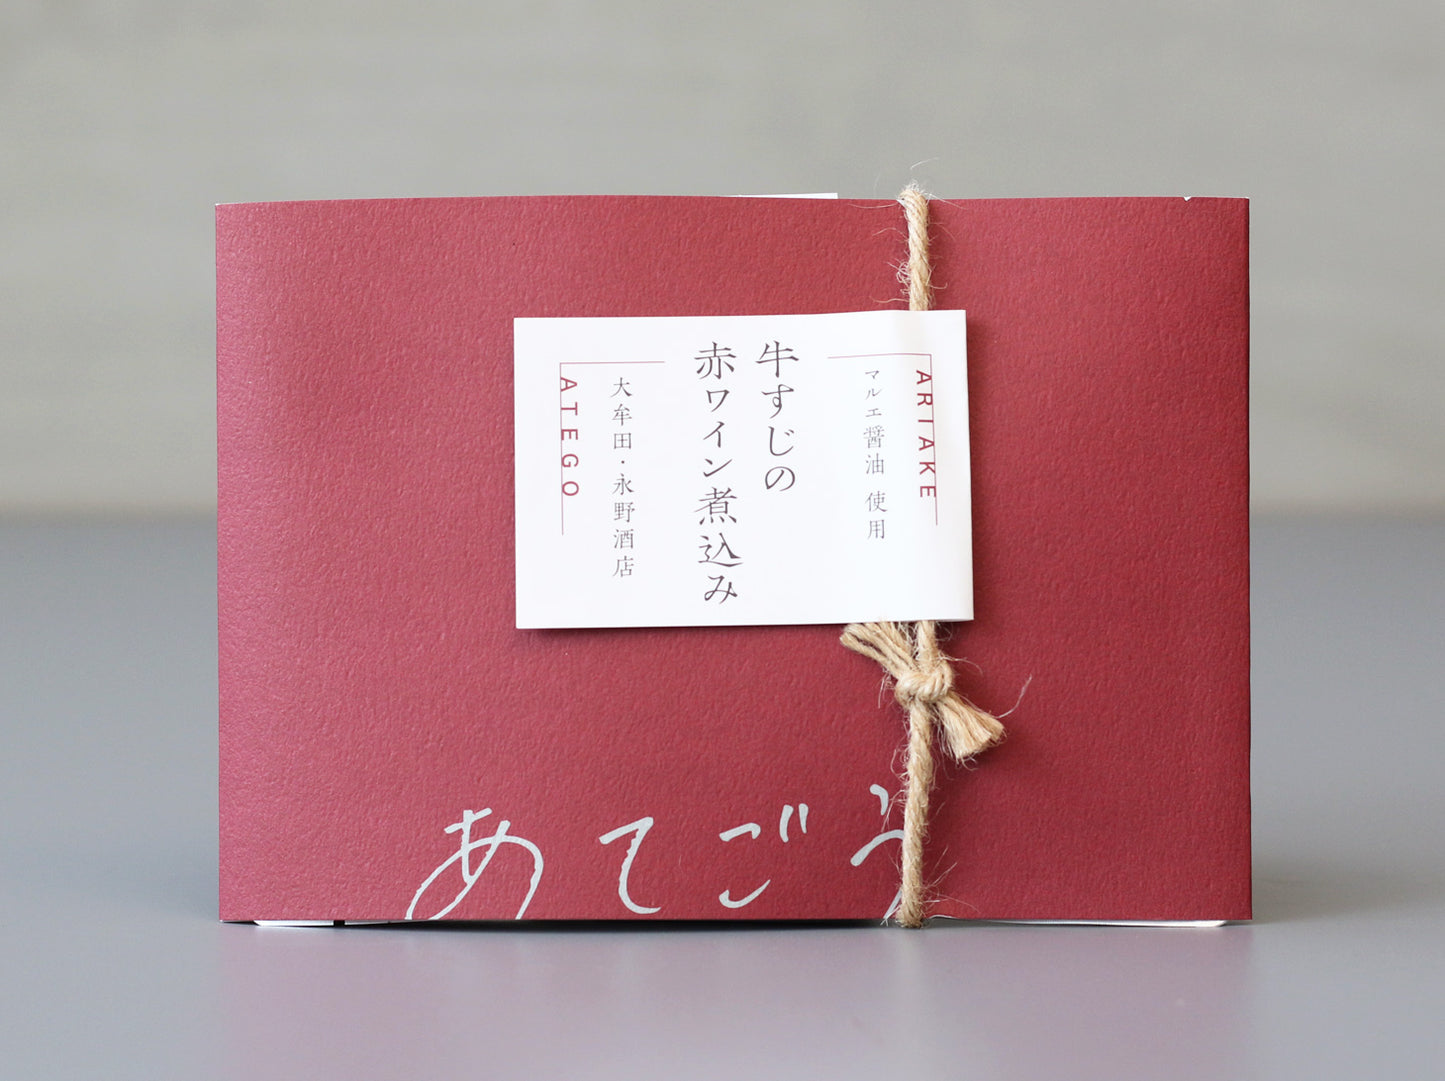 ARIAKE
マルエ醤油 使用
牛すじの
赤ワイン煮込み
大牟田・永野酒店
ATEGO
あてごう